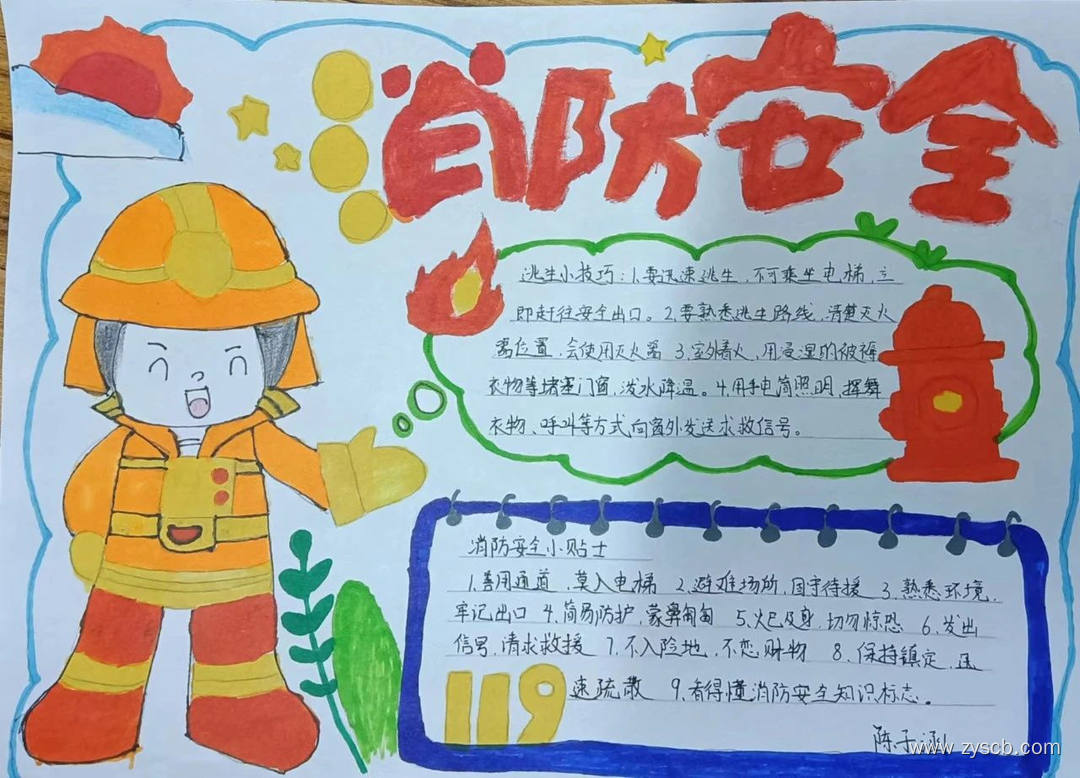 消防安全
逃生小技巧:1.要迅速逃生,不可乘坐电梯,立
即赶往安全出口。2.要熟悉逃生路线,清楚灭火
离位置,会使用灭火离 3.室外着火,用浸湿的被褥
衣物等堵塞门窗,泼水降温。4.用手电筒照明,挥舞
衣物、呼叫等方式向窗外发送求救信号。
消防安全小贴士
1.善用通道,莫入电梯 2.避难场所,固守待援 3.熟悉环境,
牢记出口 4.简易防护,蒙鼻匍匐 5.火已及身,切勿惊恐 6.发出
信号,请求救援 7.不入险地,不恋财物 8.保持镇定,迅
速疏散 9.看得懂消防安全知识标志。
119
陈子涵
www.zyscb.com